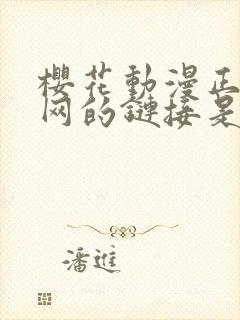 櫻花動漫正
网的鏈接是
潘進